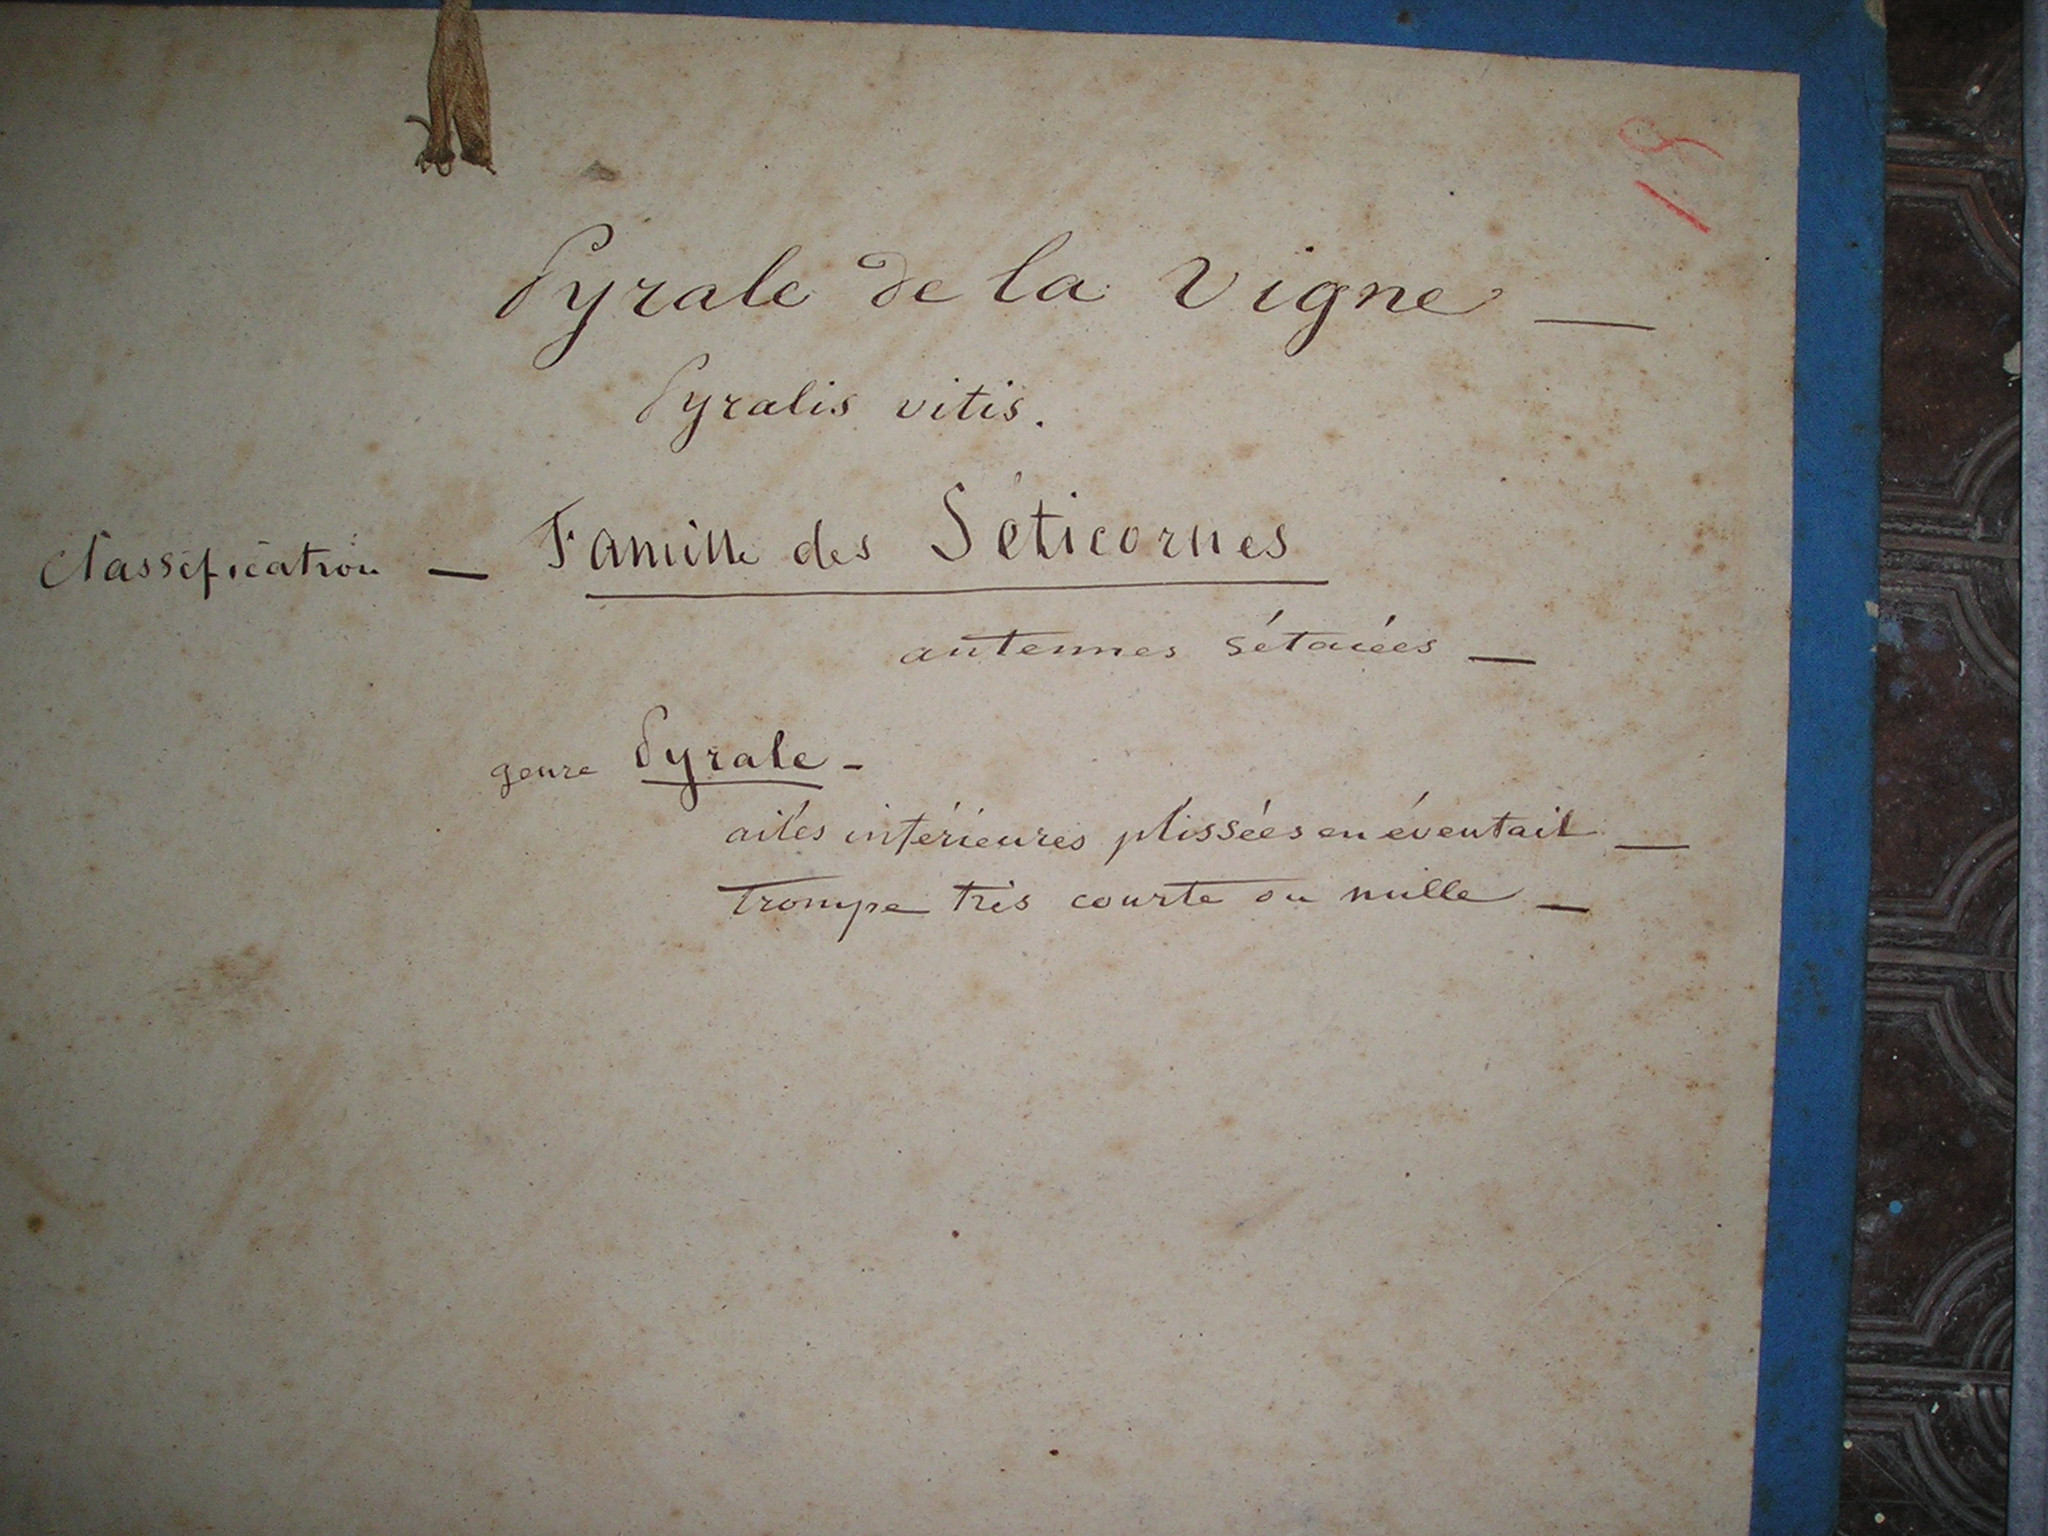 Pyrale de la Vigne —
Pyralis vitis.
Classification — Famille des Séticornes
antennes sétacées —
genre Pyrale -
ailes inférieures plissées en éventail —
trompe très courte ou nulle —